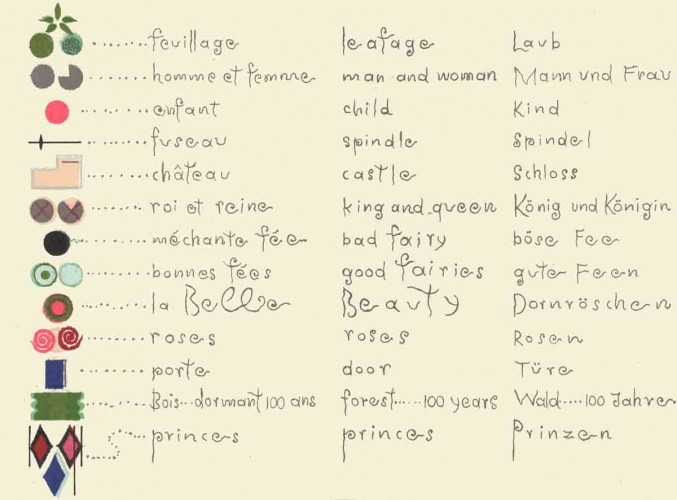 feuillage leafage Laub
homme et femme man and woman Mann und Frau
enfant child Kind
fuseau spindle Spindel
château castle Schloss
roi et reine king and queen König und Königin
méchante fée bad fairy böse Fee
bonnes fées good fairies gute Feen
la Belle Beauty Dornröschen
roses roses Rosen
porte door Türe
Bois dormant 100 ans forest 100 years Wald 100 Jahre
princes princes Prinzen